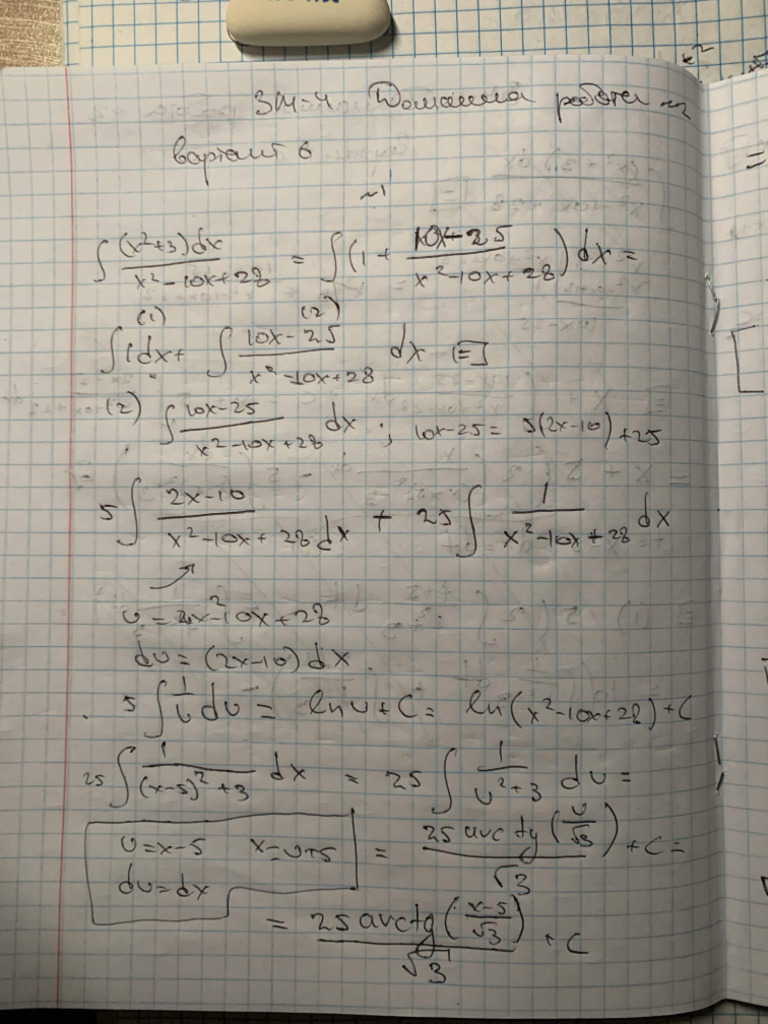 ЗМ-4 Домашня робота №2
варіант 6
№1
∫ (x²+3)dx / (x²-10x+28) = ∫(1 + (10x-25) / (x²-10x+28)) dx =
(1) (2)
∫1dx + ∫ (10x-25) / (x²-10x+28) dx [=]
(2) ∫ (10x-25) / (x²-10x+28) dx ; 10x-25 = 5(2x-10)+25
5 ∫ (2x-10) / (x²-10x+28) dx + 25 ∫ 1 / (x²-10x+28) dx
u = x²-10x+28
du = (2x-10)dx.
5 ∫ 1/u du = ln u + C = ln(x²-10x+28)+C
25 ∫ 1 / ((x-5)²+3) dx = 25 ∫ 1 / (u²+3) du =
u=x-5 x=u+5 = 25 arctg(u/√3) / √3 + C =
du=dx
= 25 arctg((x-5)/√3) / √3 + C